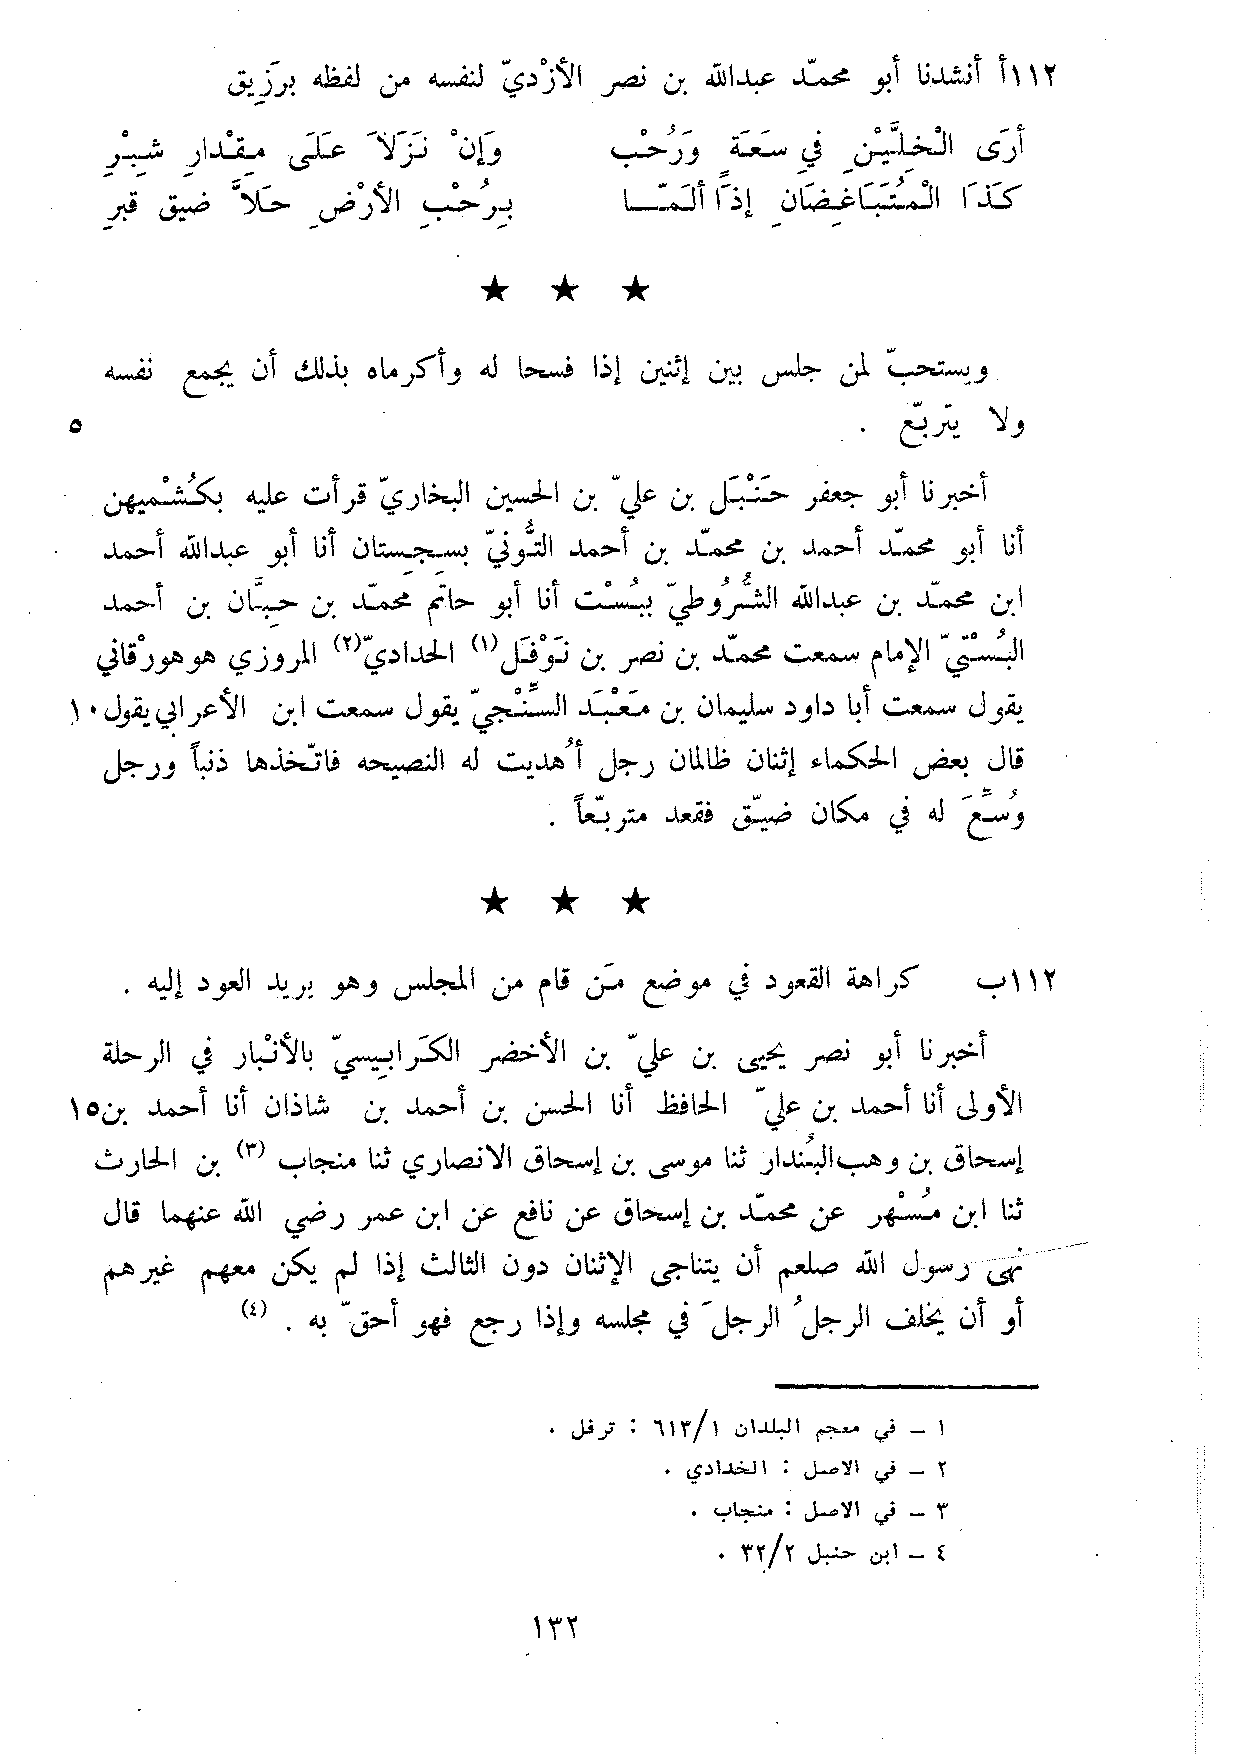 ١١٢أ أنشدنا أبو محمّد عبدالله بن نصر الأزْديّ لنفسه من لفظه برَزِيق
أرَى الْخلِّيْنِ في سَعَة وَرُحْب وَإنْ نَزَلاَ عَلَى مِقْدارِ شِبْرِ
كَذَا الْمُتَبَاغِضَانِ إذاً ألَمَّا بِرُحْبِ الأرْضِ حَلاَّ ضيق قبرِ
★ ★ ★
ويستحبّ لمن جلس بين إثنين إذا فسحا له وأكرماه بذلك أن يجمع نفسه
ولا يتربّع . ٥
أخبرنا أبو جعفر حَنْبَل بن عليّ بن الحسين البخاريّ قرأت عليه بكُشْميهن
أنا أبو محمّد أحمد بن محمّد بن أحمد التُّونيّ بسِجِستان أنا أبو عبدالله أحمد
ابن محمّد بن عبدالله الشُّرُوطيّ ببُسْت أنا أبو حاتم محمّد بن حِبَّان بن أحمد
البُسْتيّ الإمام سمعت محمّد بن نصر بن نَوْفَل(١) الحداديّ(٢) المروزي هوهورْقاني
يقول سمعت أبا داود سليمان بن مَعْبَد السِّنْجيّ يقول سمعت ابن الأعرابي يقول ١٠
قال بعض الحكماء إثنان ظالمان رجل أُهديت له النصيحه فاتّخذها ذنباً ورجل
وُسِّعَ له في مكان ضيّق فقعد متربّعاً .
★ ★ ★
١١٢ب كراهة القعود في موضع مَن قام من المجلس وهو يريد العود إليه .
أخبرنا أبو نصر يحيى بن عليّ بن الأخضر الكَرابِيسيّ بالأنْبار في الرحلة
الأولى أنا أحمد بن عليّ الحافظ أنا الحسن بن أحمد بن شاذان أنا أحمد بن ١٥
إسحاق بن وهب البُندار ثنا موسى بن إسحاق الانصاري ثنا منجاب (٣) بن الحارث
ثنا ابن مُسْهر عن محمّد بن إسحاق عن نافع عن ابن عمر رضي الله عنهما قال
نهى رسول الله صلعم أن يتناجى الإثنان دون الثالث إذا لم يكن معهم غيرهم
أو أن يخلف الرجلُ الرجلَ في مجلسه وإذا رجع فهو أحقّ به . (٤)
١ – في معجم البلدان ٦١٣/١ : ترفل .
٢ – في الاصل : الخدادي .
٣ – في الاصل : منجاب .
٤ – ابن حنبل ٣٢/٢ .
١٣٢